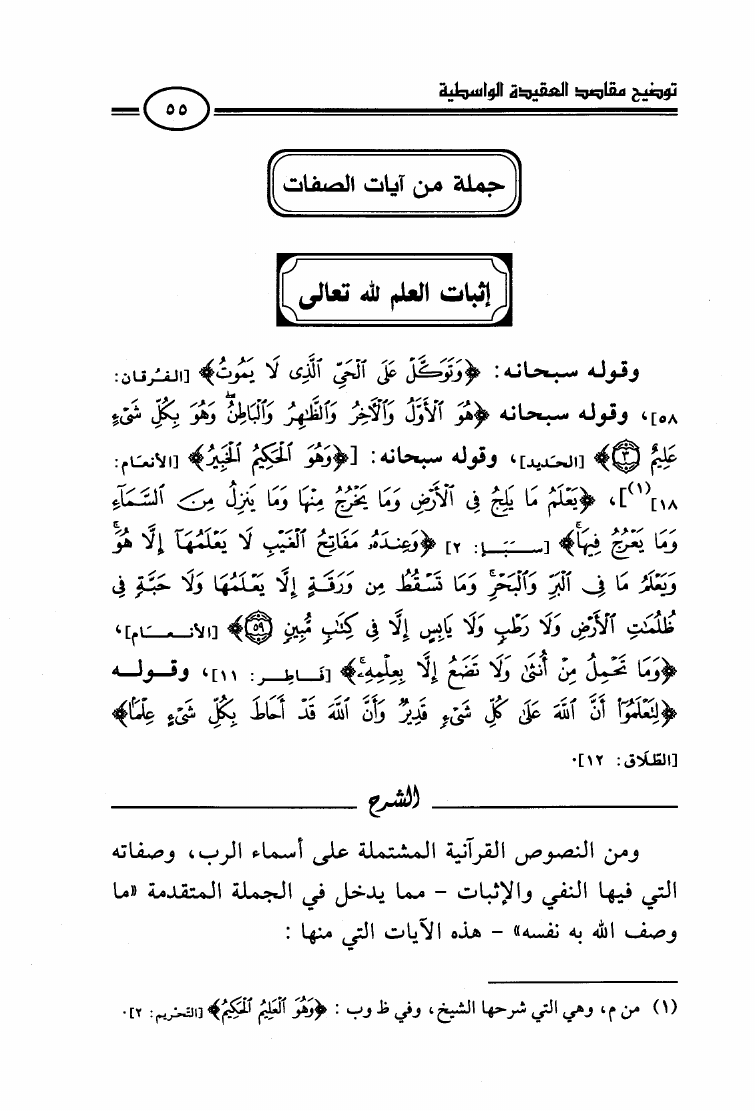 توضيح مقاصد العقيدة الواسطية
٥٥
جملة من آيات الصفات
إثبات العلم لله تعالى
وقوله سبحانه: ﴿وَتَوَكَّلْ عَلَى ٱلْحَيِّ ٱلَّذِى لَا يَمُوتُ﴾ [الفُرقان:
٥٨]، وقوله سبحانه ﴿هُوَ ٱلْأَوَّلُ وَٱلْآخِرُ وَٱلظَّٰهِرُ وَٱلْبَاطِنُ ۖ وَهُوَ بِكُلِّ شَىْءٍ
عَلِيمٌ ۝٣﴾ [الحَديد]، وقوله سبحانه: [﴿وَهُوَ ٱلْحَكِيمُ ٱلْخَبِيرُ﴾ [الأنعَام:
١٨](١)]، ﴿يَعْلَمُ مَا يَلِجُ فِى ٱلْأَرْضِ وَمَا يَخْرُجُ مِنْهَا وَمَا يَنزِلُ مِنَ ٱلسَّمَآءِ
وَمَا يَعْرُجُ فِيهَا ۚ﴾ [سَبَإ: ٢] ﴿وَعِندَهُۥ مَفَاتِحُ ٱلْغَيْبِ لَا يَعْلَمُهَآ إِلَّا هُوَ ۚ
وَيَعْلَمُ مَا فِى ٱلْبَرِّ وَٱلْبَحْرِ ۚ وَمَا تَسْقُطُ مِن وَرَقَةٍ إِلَّا يَعْلَمُهَا وَلَا حَبَّةٍ فِى
ظُلُمَٰتِ ٱلْأَرْضِ وَلَا رَطْبٍ وَلَا يَابِسٍ إِلَّا فِى كِتَٰبٍ مُّبِينٍ ۝٥٩﴾ [الأنعَام]،
﴿وَمَا تَحْمِلُ مِنْ أُنثَىٰ وَلَا تَضَعُ إِلَّا بِعِلْمِهِۦ ۚ﴾ [فَاطِر: ١١]، وقوله
﴿لِتَعْلَمُوٓا۟ أَنَّ ٱللَّهَ عَلَىٰ كُلِّ شَىْءٍ قَدِيرٌ وَأَنَّ ٱللَّهَ قَدْ أَحَاطَ بِكُلِّ شَىْءٍ عِلْمًۢا﴾
[الطّلَاق: ١٢].
الشرح
ومن النصوص القرآنية المشتملة على أسماء الرب، وصفاته
التي فيها النفي والإثبات - مما يدخل في الجملة المتقدمة «ما
وصف الله به نفسه» - هذه الآيات التي منها :
(١) من م، وهي التي شرحها الشيخ، وفي ظ وب : ﴿وَهُوَ ٱلْعَلِيمُ ٱلْحَكِيمُ﴾ [التّحْريم: ٢].